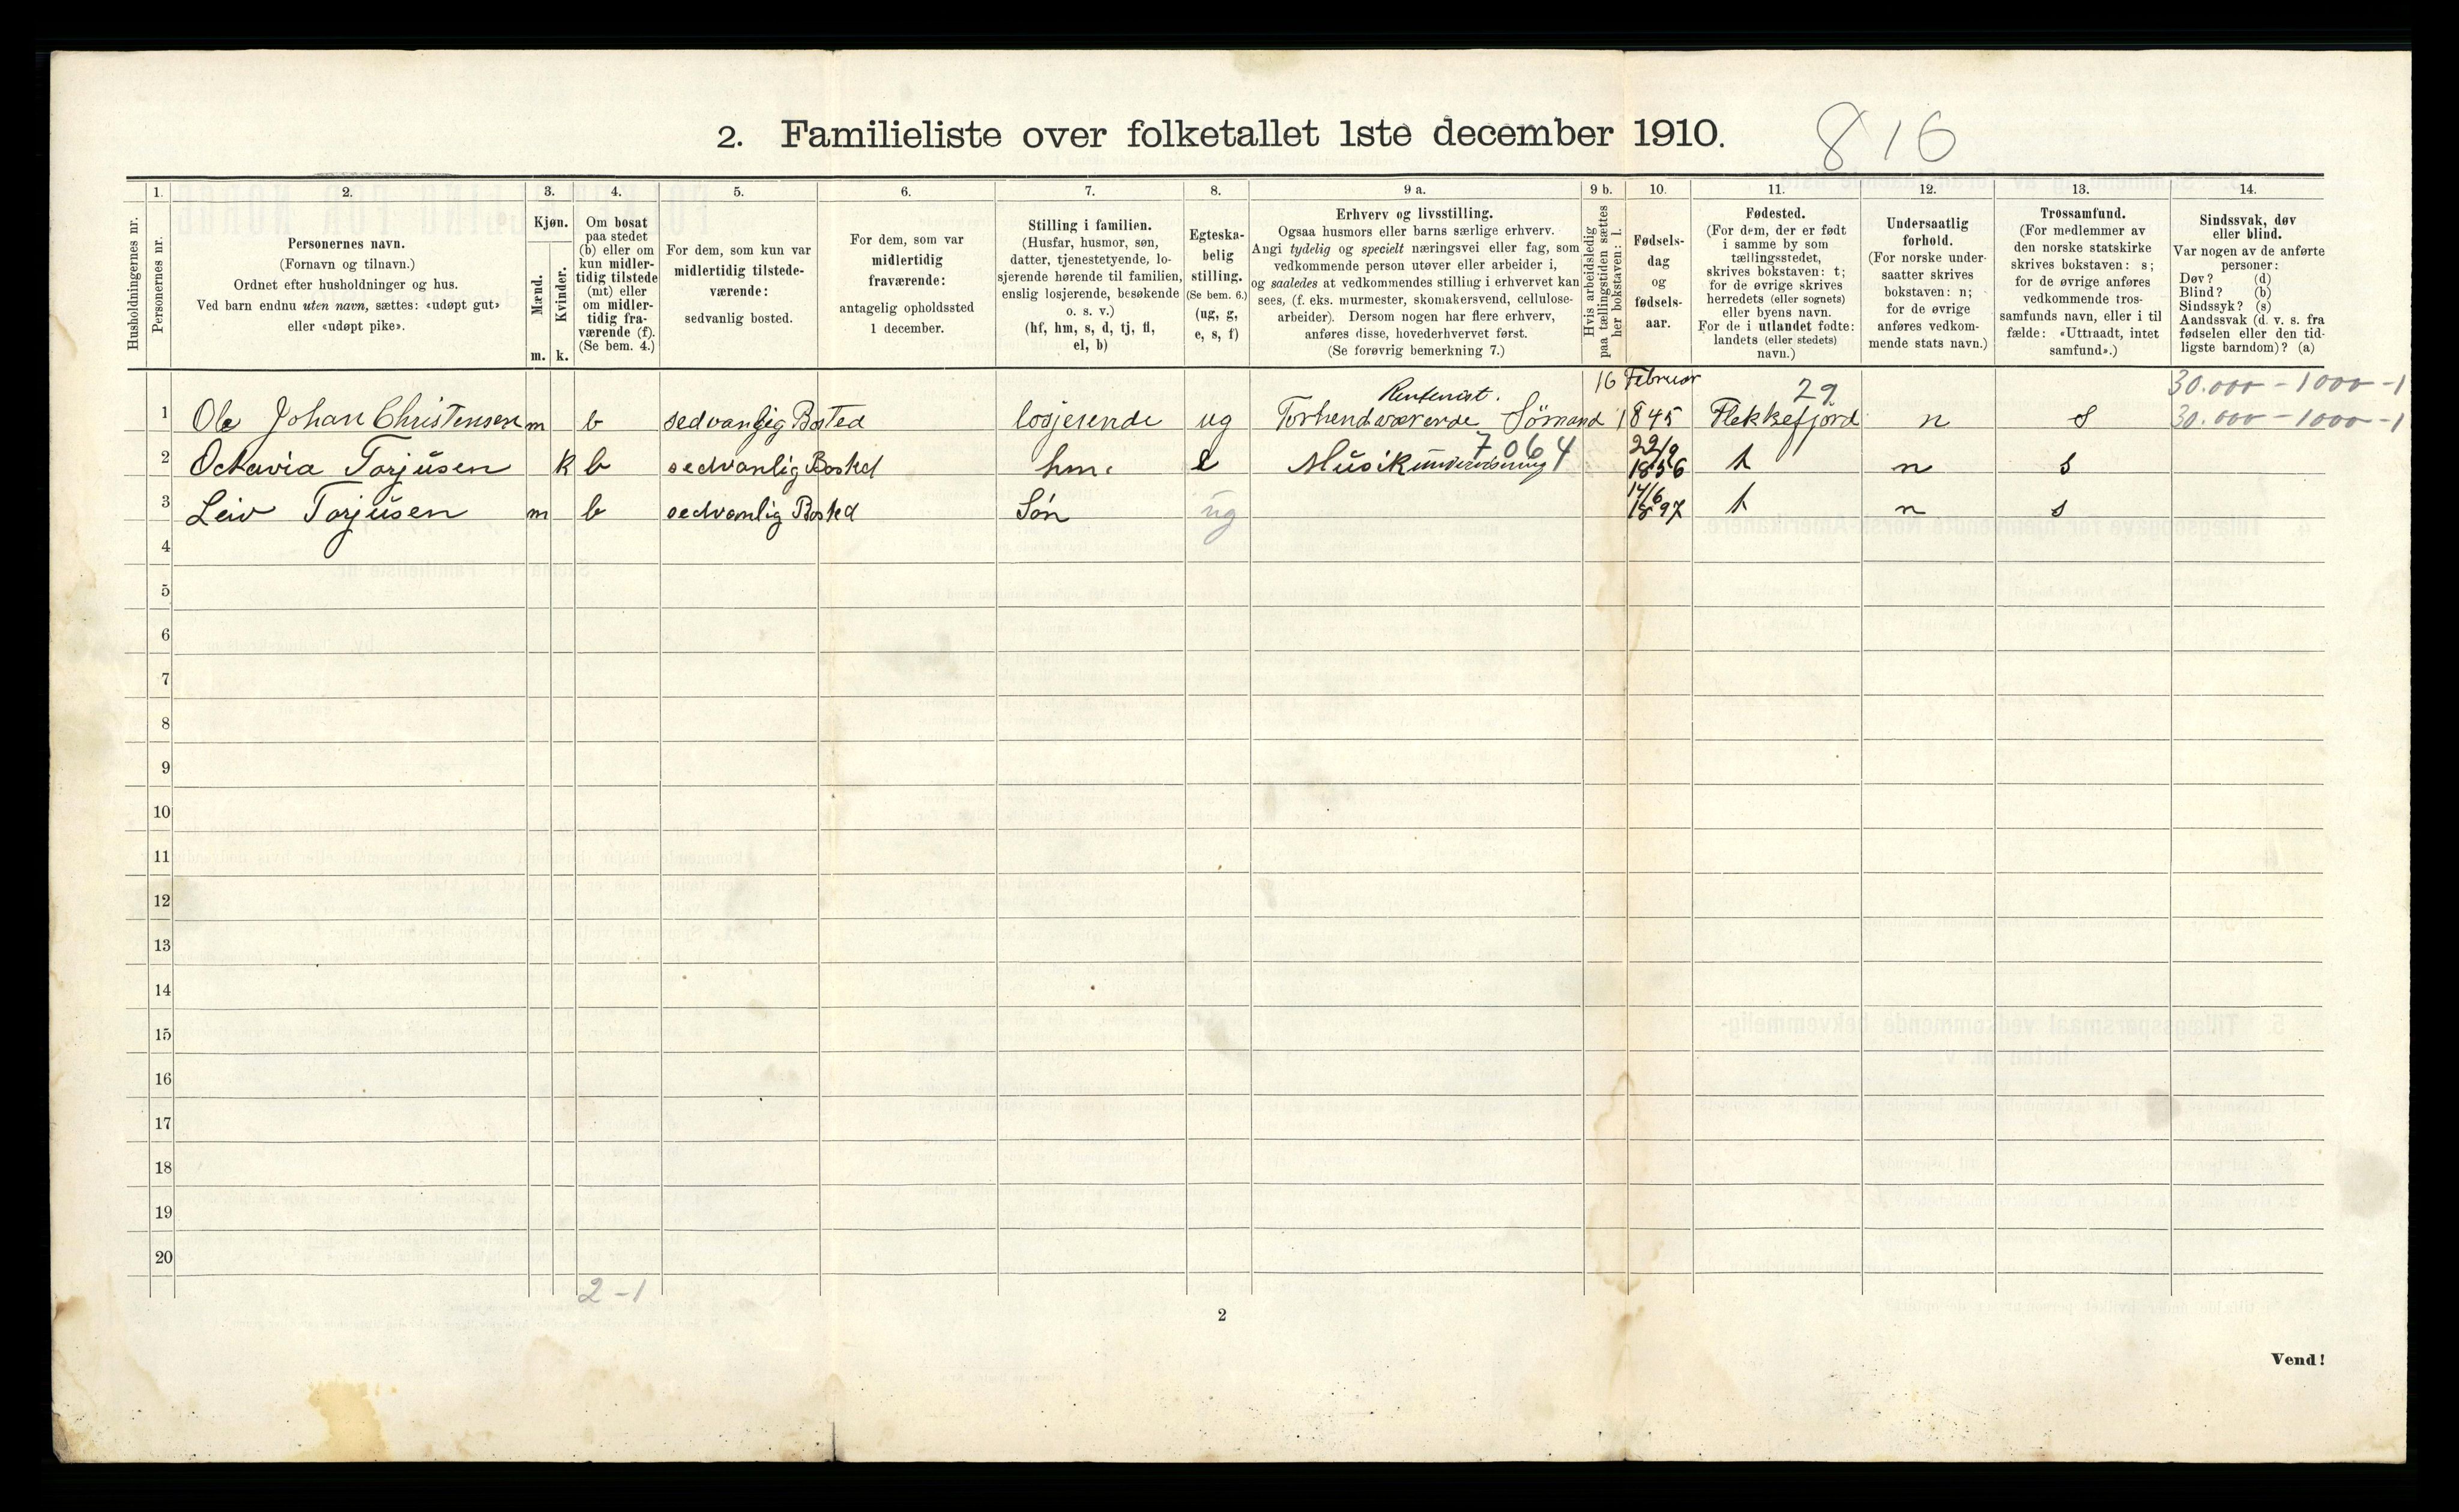 2. Familieliste over folketallet 1ste december 1910. 816
1. 2. 3. 4. 5. 6. 7. 8. 9 a. 9 b. 10. 11. 12. 13. 14.
Husholdningernes nr.
Personernes nr.
Personernes navn.
(Fornavn og tilnavn.)
Ordnet efter husholdninger og hus.
Ved barn endnu uten navn, sættes: «udøpt gut»
eller «udøpt pike».
Kjøn.
Mænd.
Kvinder.
m. k.
Om bosat
paa stedet
(b) eller om
kun midler-
tidig tilstede
(mt) eller
om midler-
tidig fra-
værende (f).
(Se bem. 4.)
For dem, som kun var
midlertidig tilstede-
værende:
sedvanlig bosted.
For dem, som var
midlertidig
fraværende:
antagelig opholdssted
1 december.
Stilling i familien.
(Husfar, husmor, søn,
datter, tjenestetyende, lo-
sjerende hørende til familien,
enslig losjerende, besøkende
o. s. v.)
(hf, hm, s, d, tj, fl,
el, b)
Egteska-
belig
stilling.
(Se bem. 6.)
(ug, g,
e, s, f)
Erhverv og livsstilling.
Ogsaa husmors eller barns særlige erhverv.
Angi tydelig og specielt næringsvei eller fag, som
vedkommende person utøver eller arbeider i,
og saaledes at vedkommendes stilling i erhvervet kan
sees, (f. eks. murmester, skomakersvend, cellulose-
arbeider). Dersom nogen har flere erhverv,
anføres disse, hovederhvervet først.
(Se forøvrig bemerkning 7.)
Hvis arbeidsledig
paa tællingstiden sættes
her bokstaven: l.
Fødsels-
dag
og
fødsels-
aar.
Fødested.
(For dem, der er født
i samme by som
tællingsstedet,
skrives bokstaven: t;
for de øvrige skrives
herredets (eller sognets)
eller byens navn.
For de i utlandet fødte:
landets (eller stedets)
navn.)
Undersaatlig
forhold.
(For norske under-
saatter skrives
bokstaven: n;
for de øvrige
anføres vedkom-
mende stats navn.)
Trossamfund.
(For medlemmer av
den norske statskirke
skrives bokstaven: s;
for de øvrige anføres
vedkommende tros-
samfunds navn, eller i til
fælde: «Uttraadt, intet
samfund».)
Sindssvak, døv
eller blind.
Var nogen av de anførte
personer:
Døv? (d)
Blind? (b)
Sindssyk? (s)
Aandssvak (d. v. s. fra
fødselen eller den tid-
ligste barndom)? (a)
Rentenist. 16 Februar 29 30.000 - 1000 - 1
1 Ole Johan Christensen m b sedvanlig Bosted losjerende ug Forhendværende Sömand 1845 Flekkefjord n s 30.000 - 1000 - 1
7064 22/9
2 Octavia Torjusen k b sedvanlig Bosted hm. e Musikundervisning 1856 t n s
14/6
3 Leiv Torjusen m b sedvanlig Bosted Søn ug 1897 t n s
4
5
6
7
8
9
10
11
12
13
14
15
16
17
18
19
20
2-1
2
Vend!